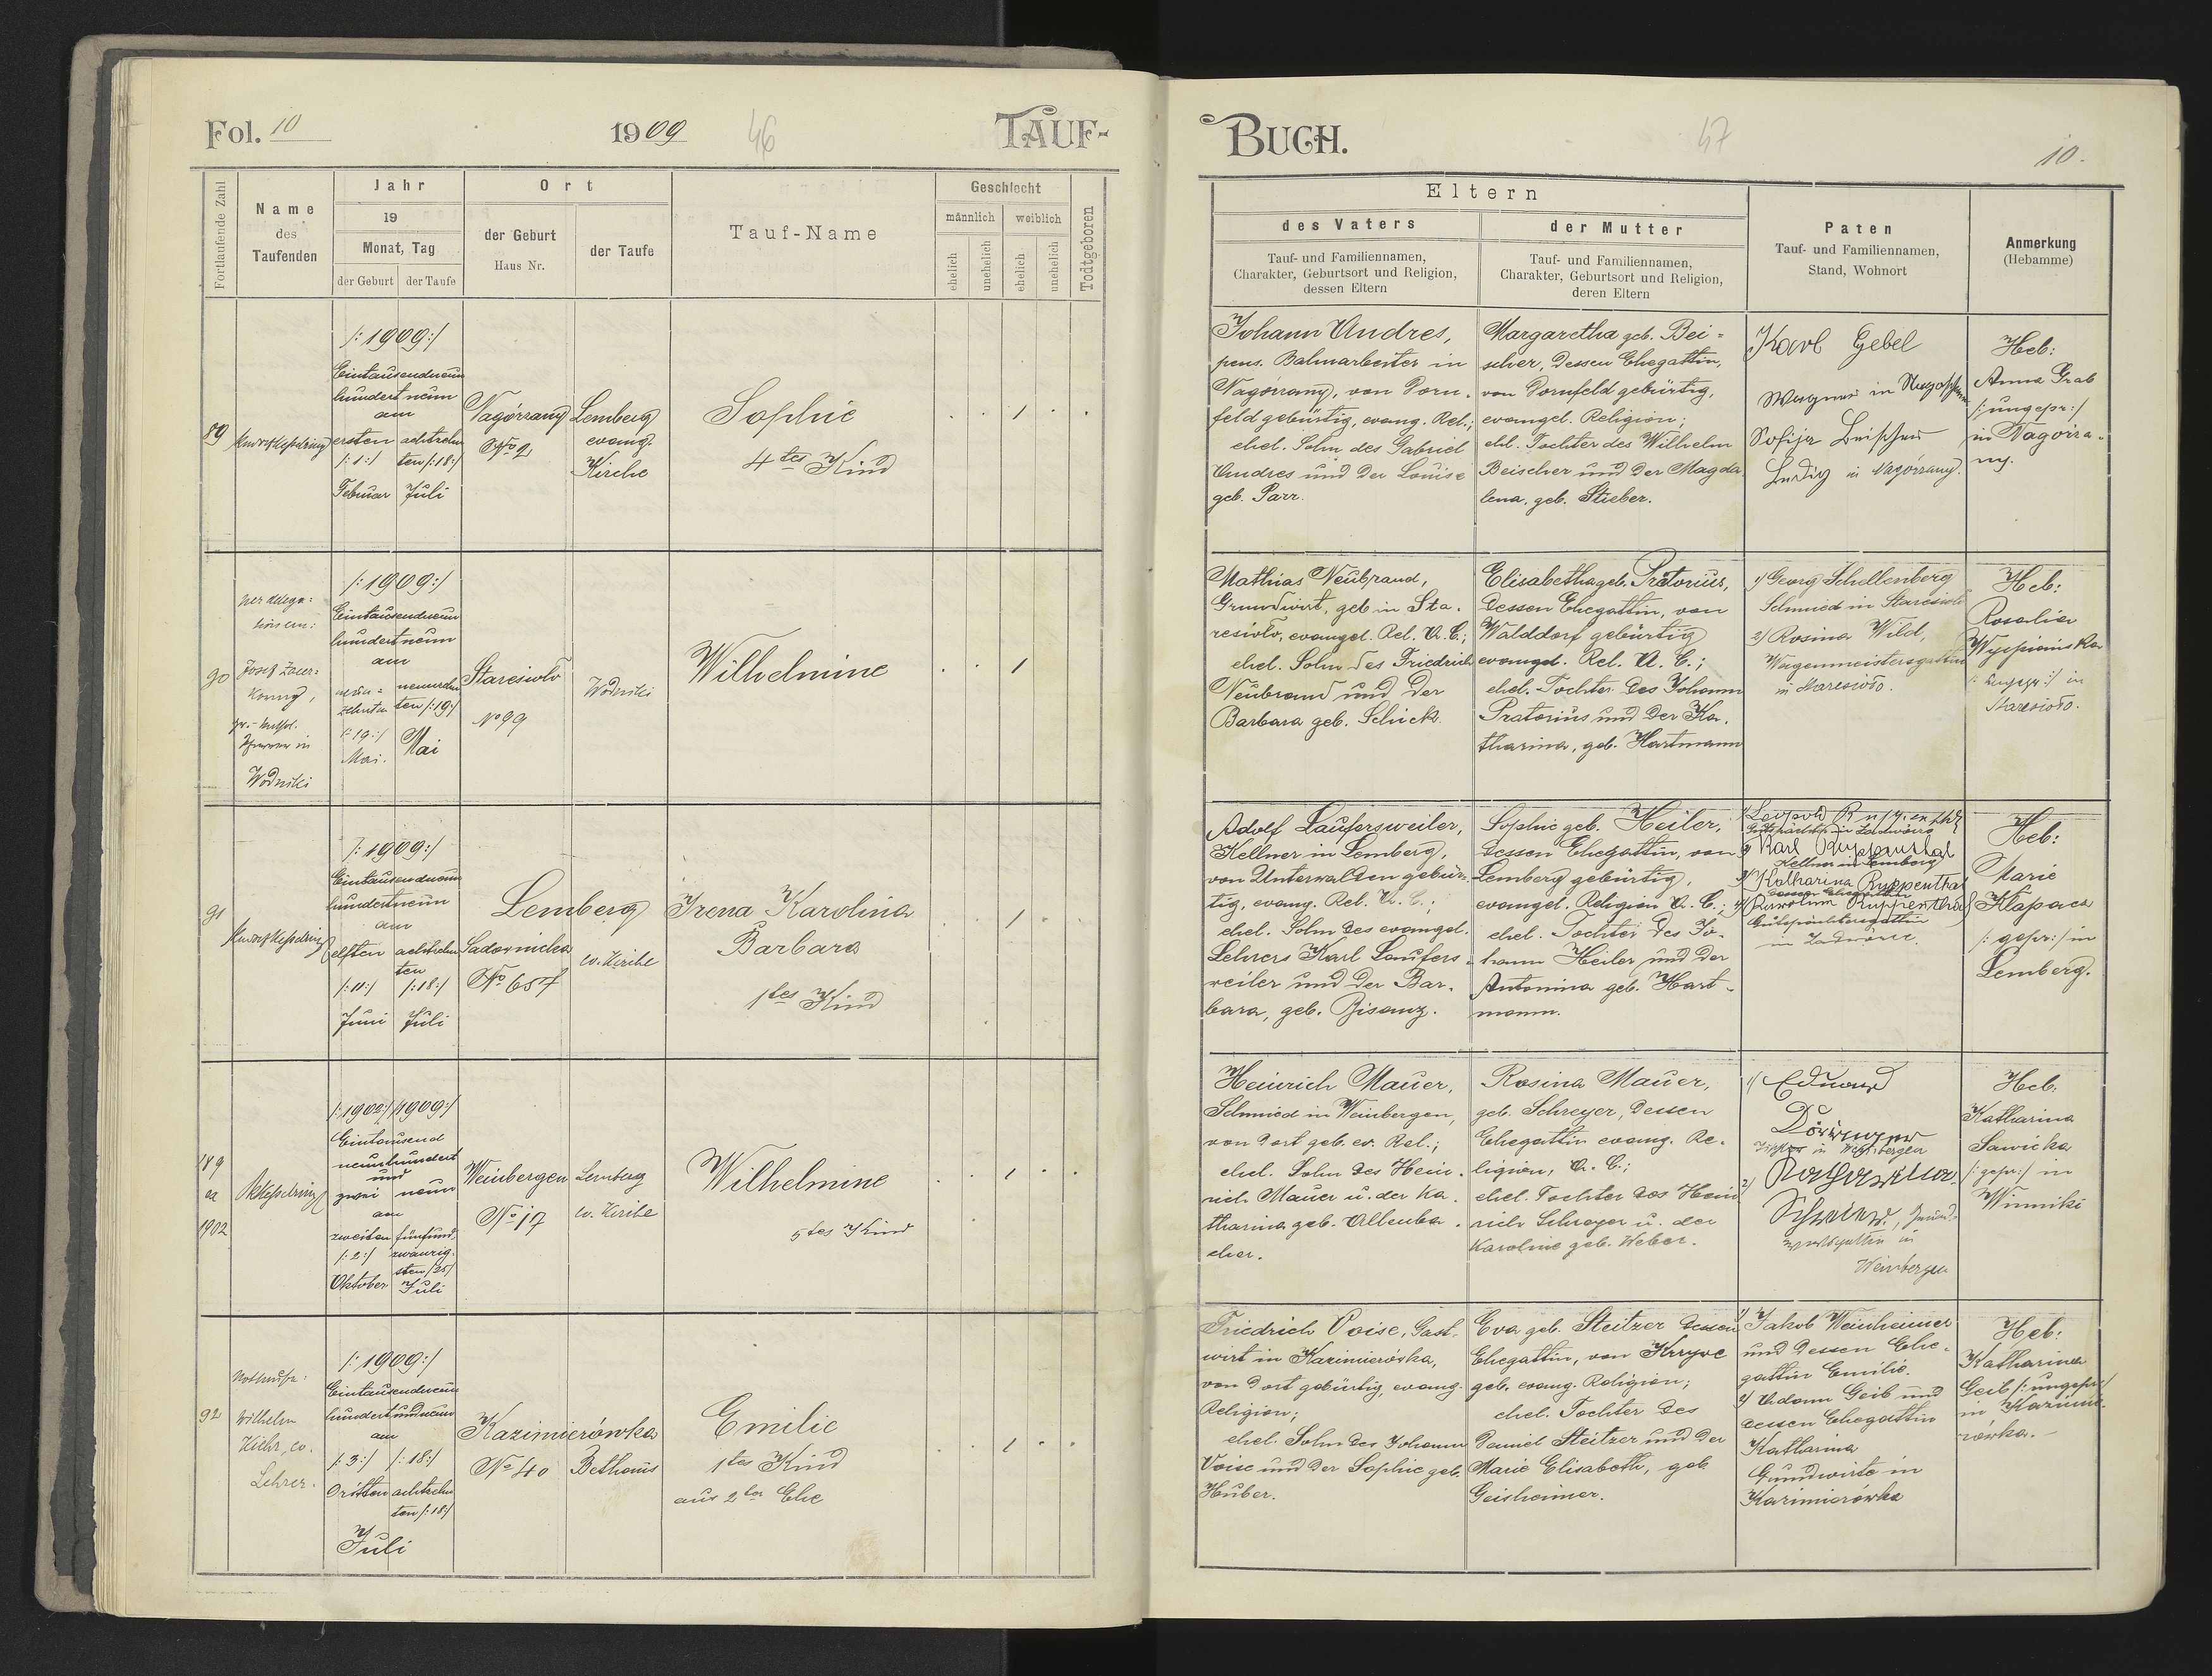 Fol. 10
1909
46
TAUF-
Fortlaufende Zahl
Name
des
Taufenden
Jahr
19
Monat, Tag
der Geburt
der Taufe
Ort
der Geburt
Haus Nr.
der Taufe
Tauf-Name
Geschlecht
männlich
weiblich
ehelich
unehelich
ehelich
unehelich
Todtgeboren
89
/:1909:/
Eintausendneun
hundert neun
am
ersten achtzehn
/:1:/ ten/:18:/
Februar Juli
Nagórzany
No 2
Lemberg
evang.
Kirche
Sophie
4tes Kind
1
90
Josef
gr.-kathol.
Pfarrer in
Wodniki
/:1909:/
Eintausendneun
hundert neun
am
neun= neunzehn
zehnten ten/:19:/
/:19:/
Mai. Mai
Staresioło
No 99
Wodniki
Wilhelmine
1
91
/:1909:/
Eintausendneun
hundertneun
am
elften achtzehn
ten
/:11:/ /:18:/
Juni Juli
Lemberg
Sadownicka
No 65
ev. Kirche
Irena Karolina
Barbara
1tes Kind
1
149
ex
1902
/:1902:/ /1909:/
Eintausend
neunhundert
und
zwei neun
am
zweiten fünfund,
/:2:/ zwanzig.
sten/25/
Oktober Juli
Weinbergen
No 17
Lemberg
ev. Kirche
Wilhelmine
5tes Kind
1
92
Nothtaufe:
Wilhelm
ev.
Lehrer.
/:1909:/
Eintausendneun
hundertundneun
am
/:3:/ /:18:/
dritten achtzehn
ten/:18:/
Juli
Kazimierówka
No 40
Bethaus
Emilie
1tes Kind
aus 2ter Ehe
1
BUCH.
47
10.
Eltern
des Vaters
Tauf- und Familiennamen,
Charakter, Geburtsort und Religion,
dessen Eltern
der Mutter
Tauf- und Familiennamen,
Charakter, Geburtsort und Religion,
deren Eltern
Paten
Tauf- und Familiennamen,
Stand, Wohnort
Anmerkung
(Hebamme)
Johann Andres,
pens. Bahnarbeiter in
Nagórzany, von Dorn-
feld gebürtig, evang. Rel.;
ehel. Sohn des Gabriel
Andres und der Louise
geb. Parr.
Margaretha geb. Bei=
scher, dessen Ehegattin,
von Dornfeld gebürtig,
evangel. Religion;
ehl. Tochter des Wilhelm
Beischer und der Magda
lena, geb. Stieber.
Karl Gebel
Wagner in
Sofija
Ledig in Nagórzany.
Heb:
Anna Grab
/:ungepr:/
in Nagórza-
ny.
Mathias Neubrand,
Grundwirt, geb in Sta-
resioło, evangel. Rel. A. C.;
ehel. Sohn des Friedrich
Neubrand und der
Barbara geb. Schick.
Elisabetha geb. Prätorius,
dessen Ehegattin, von
Walddorf gebürtig
evangel. Rel. A. C.;
ehel. Tochter des Johann
Pratorius und der Ka-
tharina, geb. Hartmann
1) Georg Schellenberg
Schmied in Staresioło
2) Rosina Wild,
Wagenmeistersgattin
in Staresioło.
Heb:
Rosalia
/:ungepr:/ in
Staresioło.
Adolf Laufersweiler,
Kellner in Lemberg,
von Unterwalden gebür-
tig, evang. Rel. A. C.;
ehel. Sohn des evangel.
Lehrers Karl Laufers-
weiler und der Bar-
bara, geb. Bisanz.
Sophie geb. Heiler,
dessen Ehegattin, von
Lemberg gebürtig,
evangel. Religion A. C.;
ehel. Tochter des Jo-
hann Heiler und der
Antonina geb. Hart-
mann.
1) Leopold
Gutspächter in
2) Karl Ruppenthal
Kellner in Lemberg
3) Katharina Ruppenthal
dessen Ehegattin
4) Karoline Ruppenthal
Gutspächtersgattin
in
Heb:
Marie
Kłapacz
/:gepr:/ in
Lemberg.
Heinrich Mauer,
Schmied in Weinbergen,
von dort geb. ev. Rel.;
ehel. Sohn des Hein-
rich Mauer u. der Ka-
tharina geb. Allenba-
cher.
Rosina Mauer,
geb. Schreyer, dessen
Ehegattin evang. Re-
ligion, A. C.;
ehel. Tochter des Hein
rich Schreyer u. der
Karoline geb. Weber.
1) Eduard
in Weinbergen
2) Katharina
in
Weinbergen
Heb.
Katharina
Sawicka
/:gepr:/ in
Winniki
Friedrich Voise, Gast-
wirt in Kazimierówka,
von dort gebürtig, evang.
Religion;
ehel. Sohn des Johann
Voise und der Sophie geb.
Huber.
Eva geb. Steitzer dessen
Ehegattin, von
geb. evang. Religion;
ehel. Tochter des
Daniel Steitzer und der
Marie Elisabeth, geb.
Geisheimer.
1) Jakob Weinheimer
und dessen Ehe-
gattin Emilie.
2) Adam Geib und
dessen Ehegattin
Katharina
Grundwirte in
Kazimierówka
Heb:
Katharina
Geib /:ungepr:/
in Kazimie-
rówka.